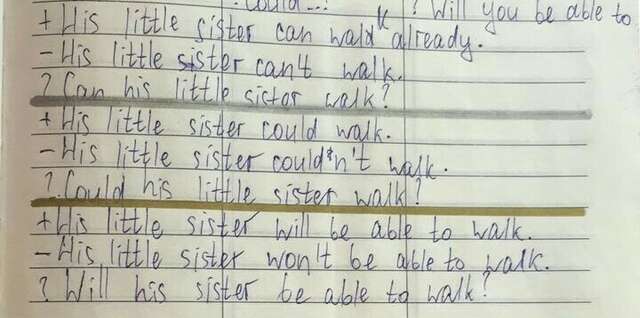 Could...? ? Will you be able to
+ His little sister can walk already.
- His little sister can't walk.
? Can his little sister walk?
+ His little sister could walk.
- His little sister couldn't walk.
? Could his little sister walk?
+ His little sister will be able to walk.
- His little sister won't be able to walk.
? Will his sister be able to walk?